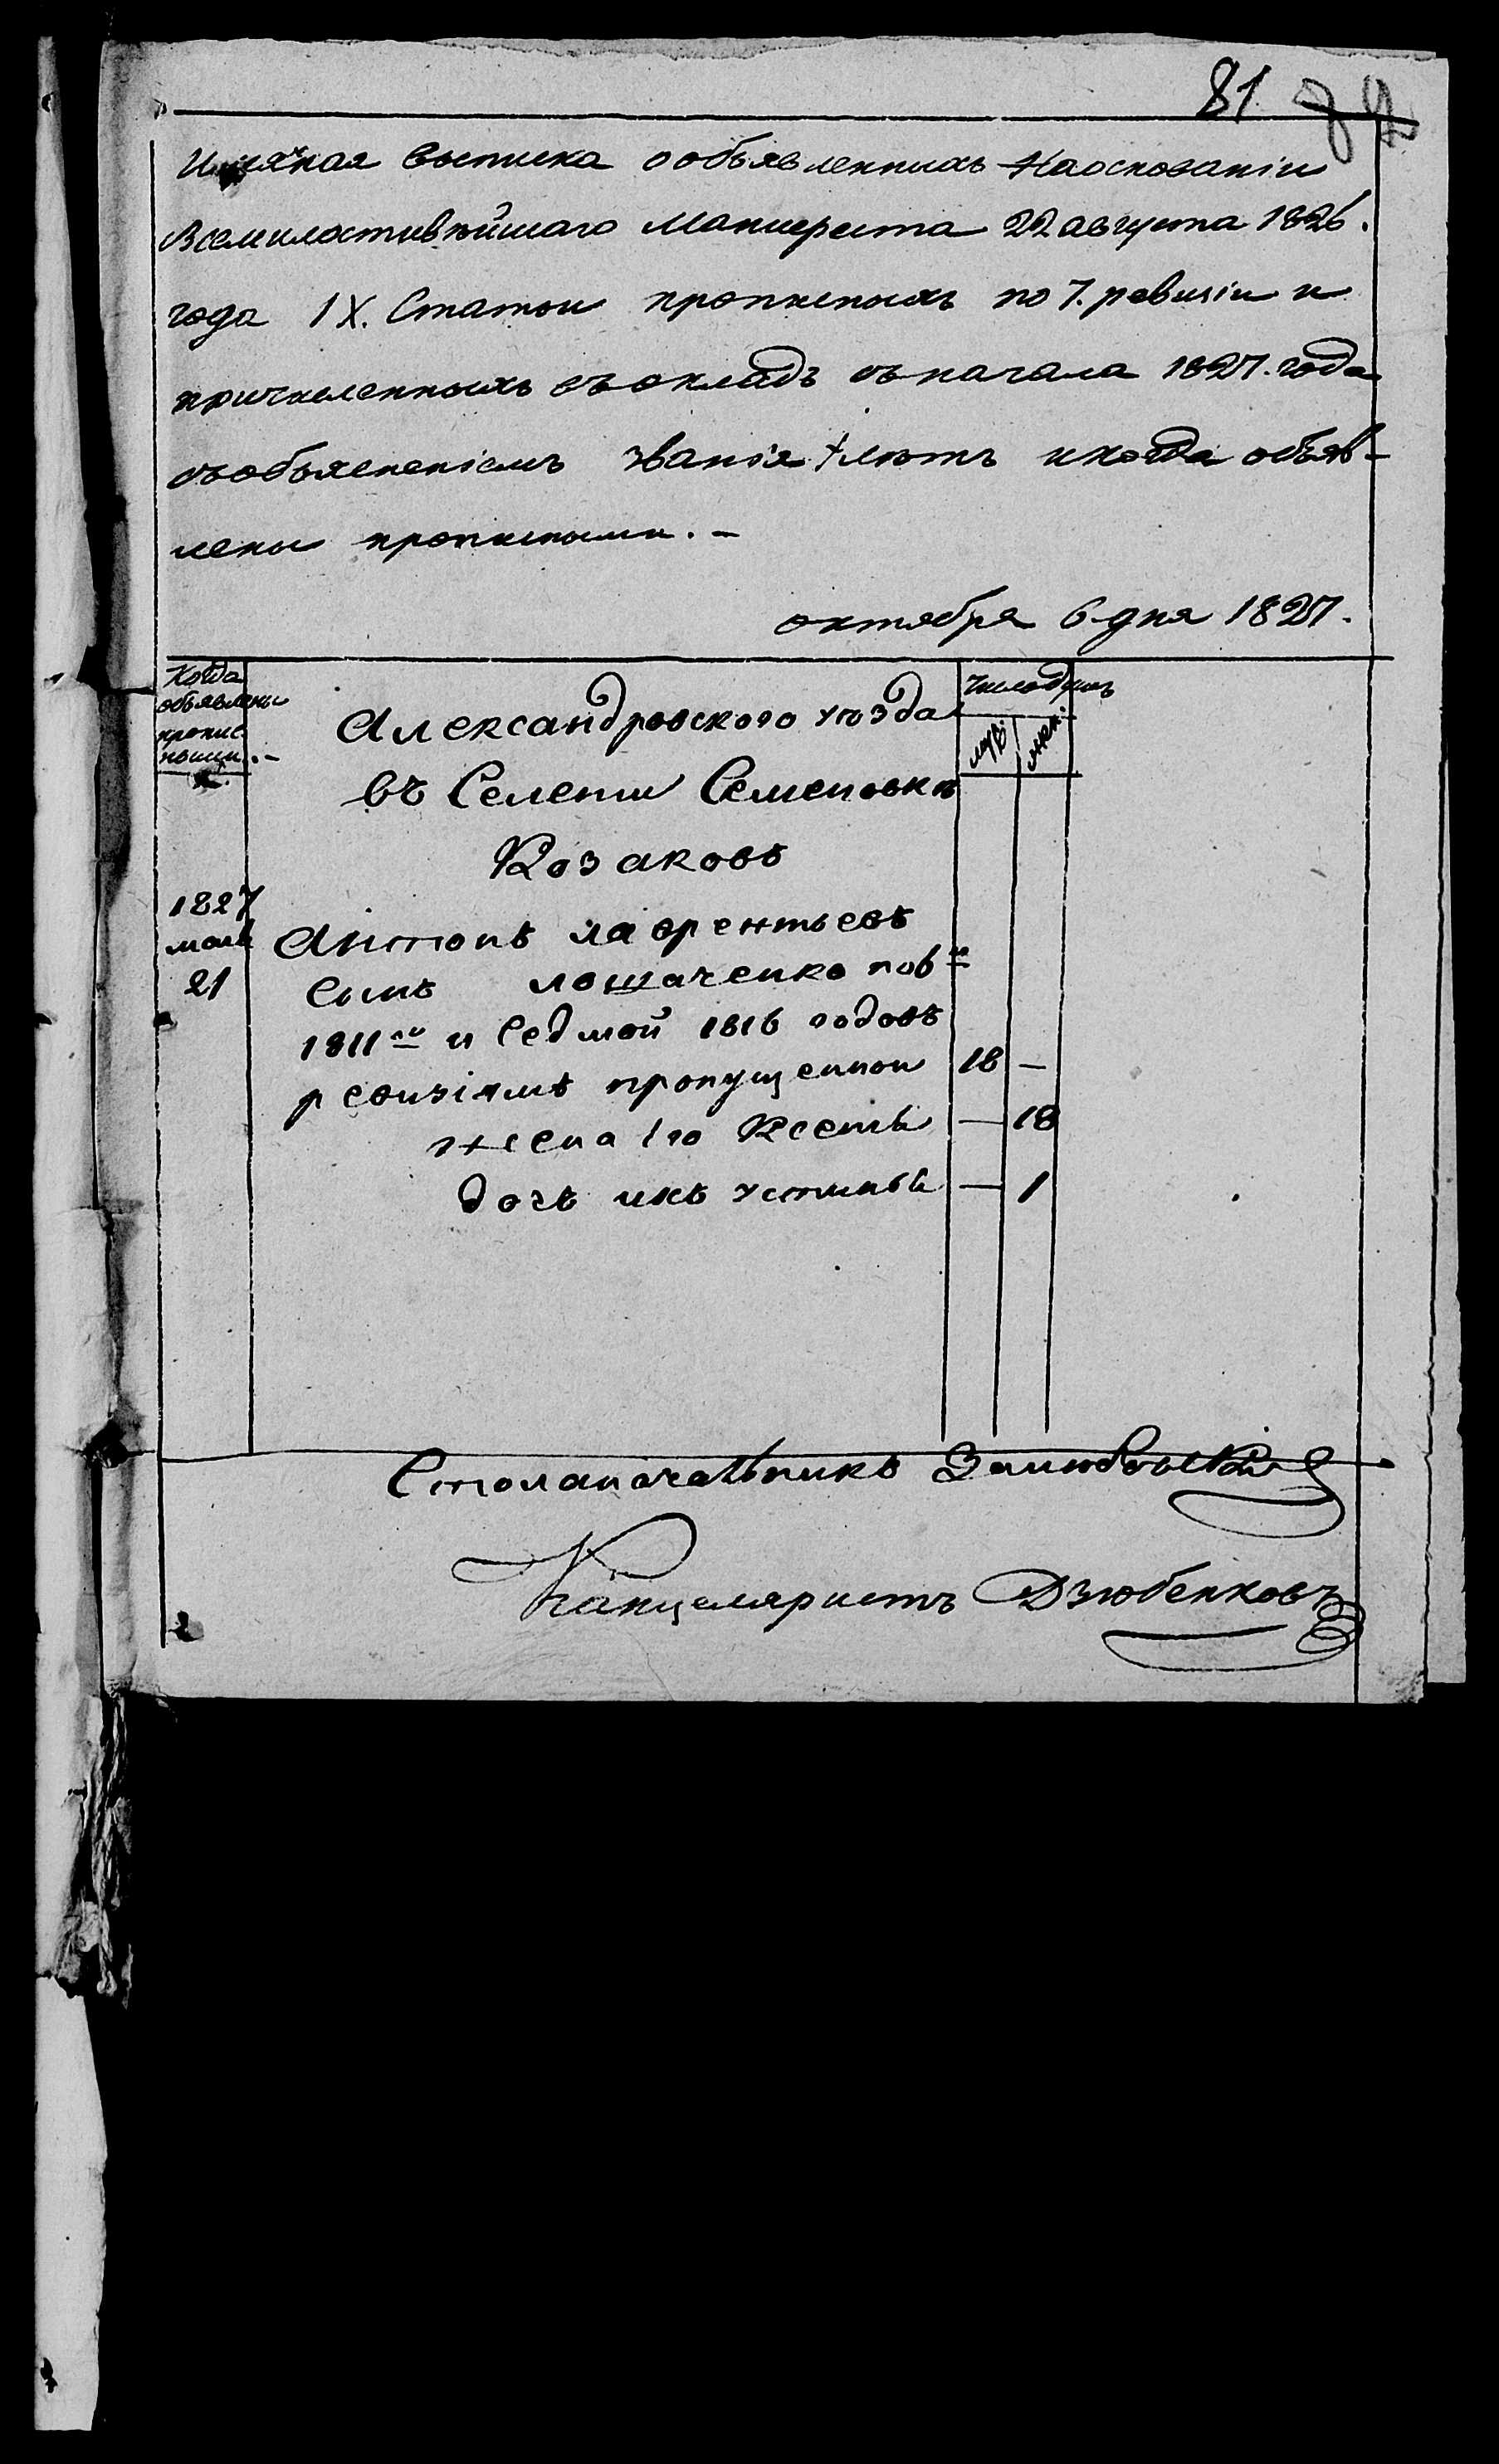 81
Имяная выписка о объявленныхъ На основаніи
Всемилостивѣйшаго Манифеста 22 августа 1826.
года IX. Статьи прописныхъ по 7. ревизіи и
причисленныхъ въ окладъ съ начала 1827. года
съ объясненіемъ званія лѣтъ и когда объяв-
лены прописными. -
октября 6. дня 1827.
Когда
объявлены
пропис
ными. -
Число душъ
муж: жен:
Александровского уѣзда
въ Селении Семеновки
Козаковъ
1827
мая
21
Антонъ лаврентьевъ
сынъ лошаченко по 6й
1811го и Седмой 1816 годовъ
ревизіямъ пропущенной 18 —
жена его Ксенья — 18
дочъ ихъ устинья — 1
Столаначальникъ
Канцеляристъ Дзюбенковъ